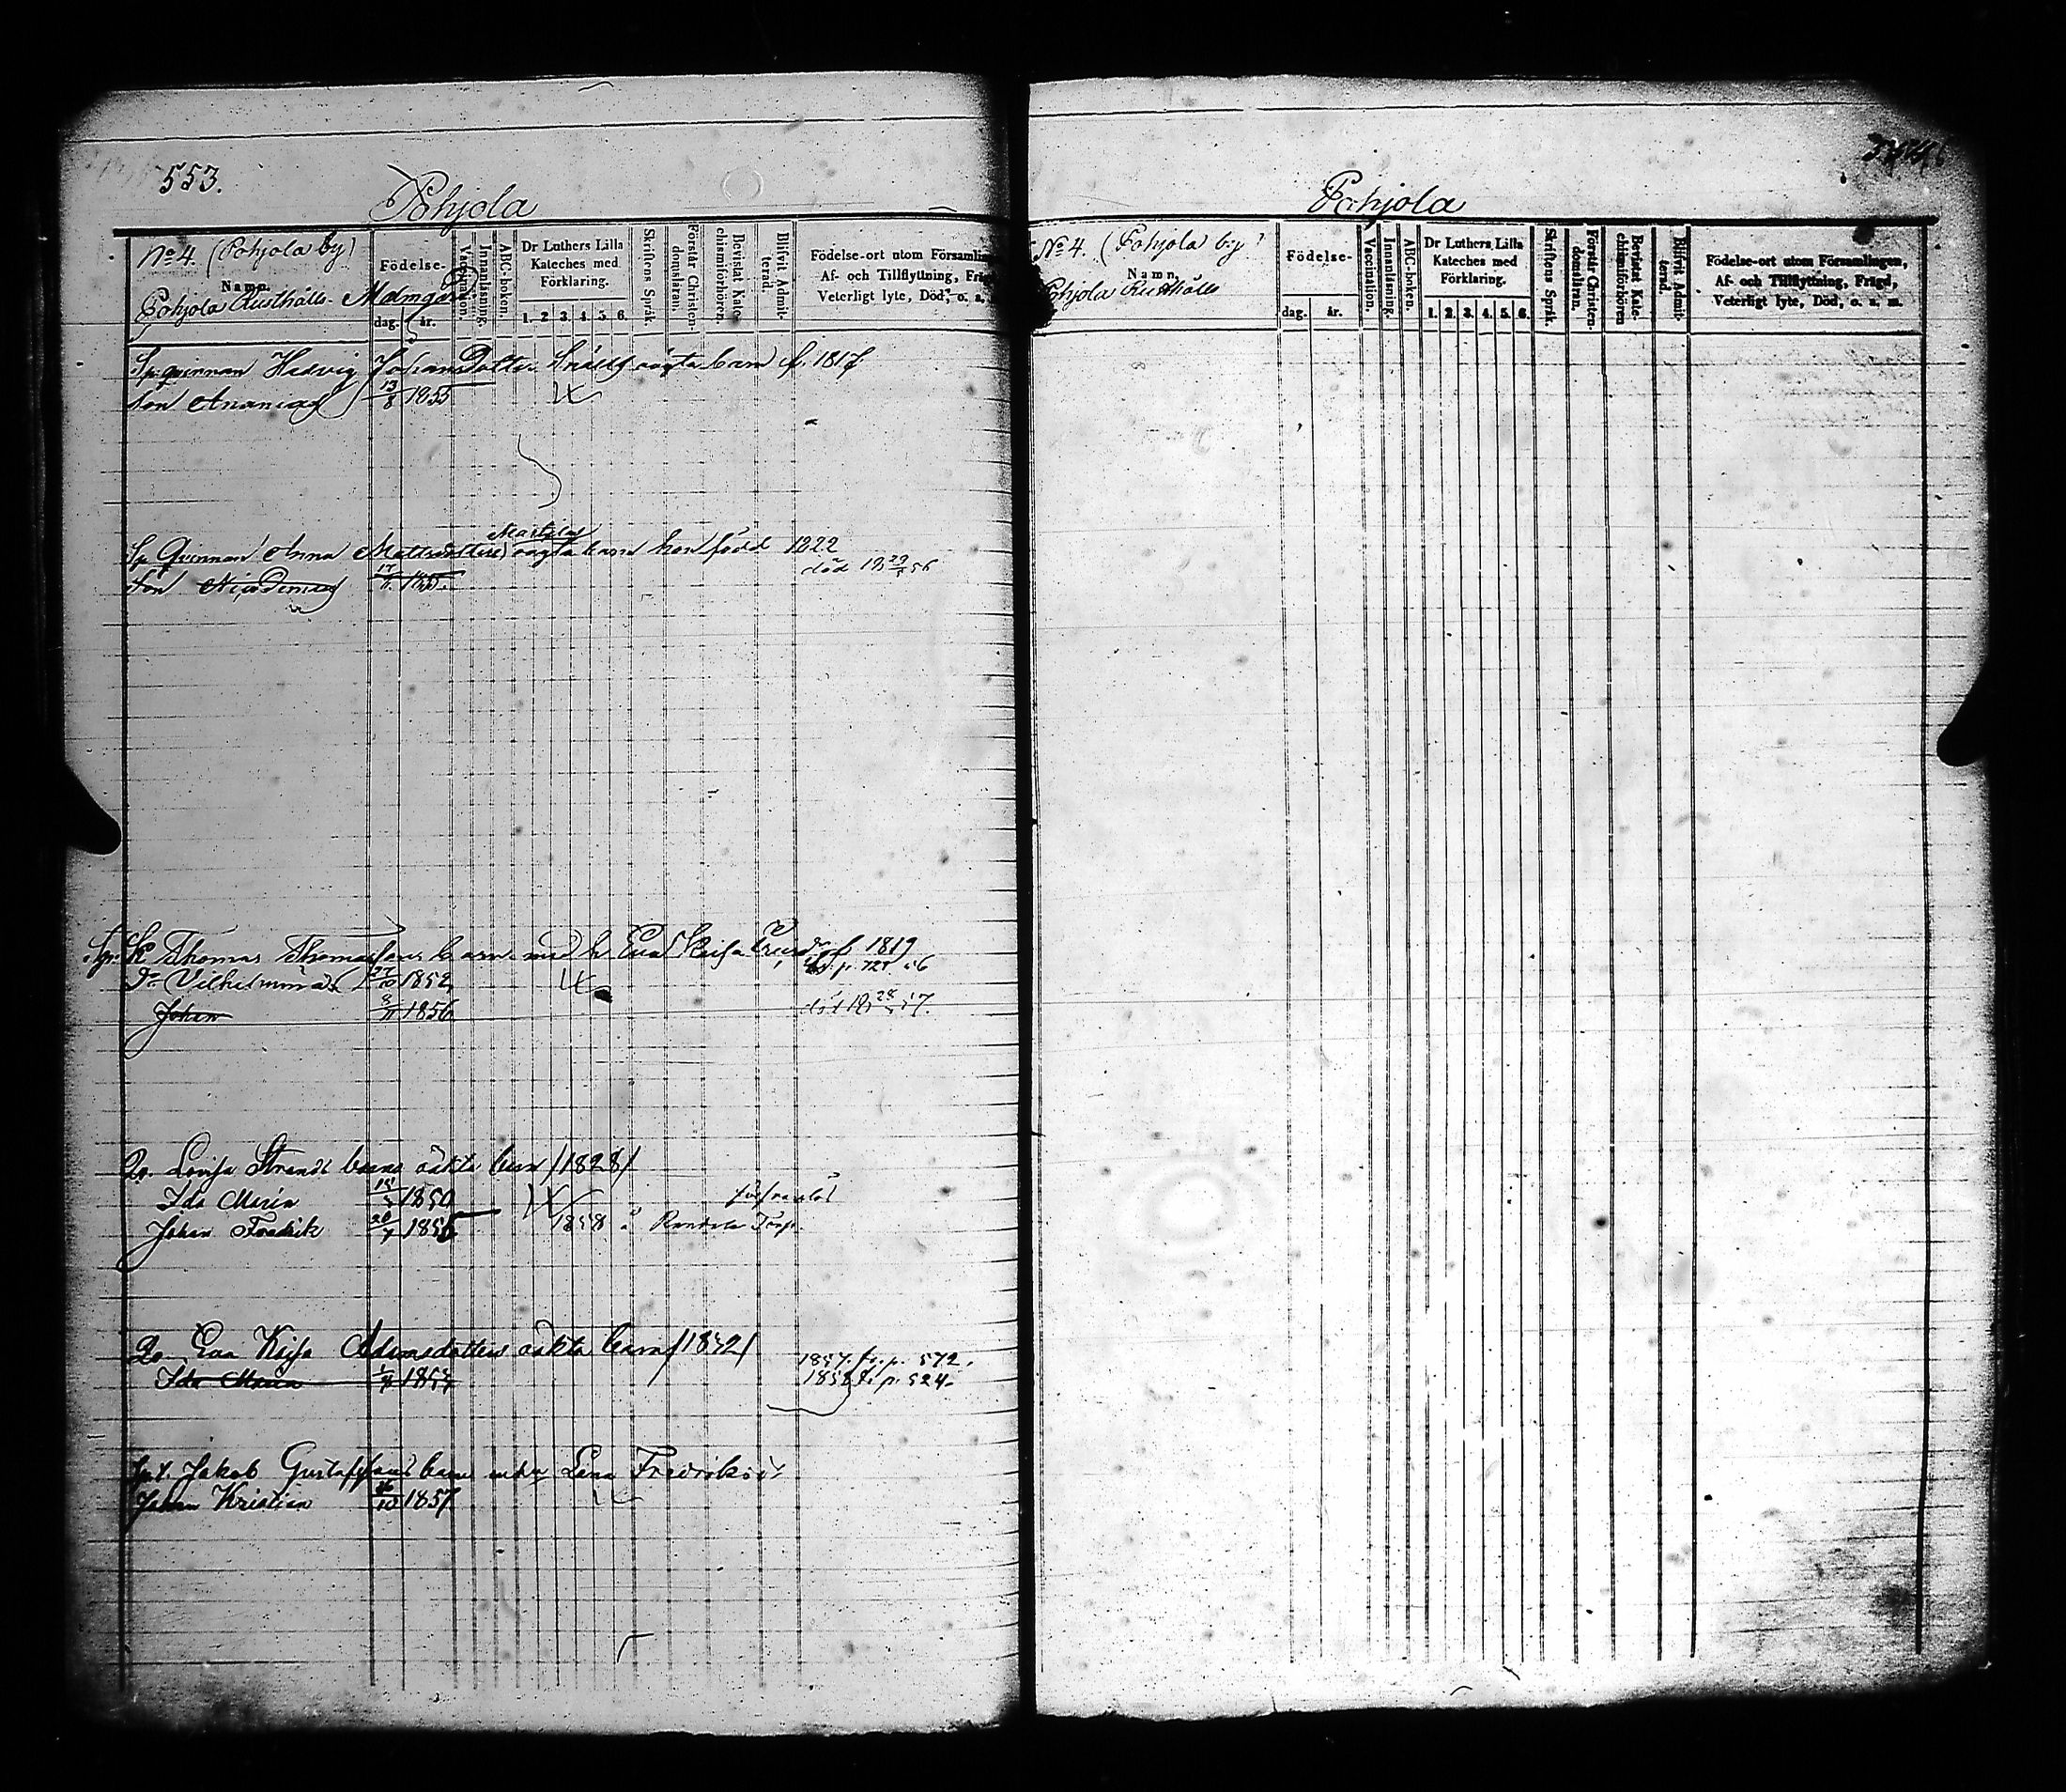 553.
Pohjola
No 4. (Pohjola by)
Namn.
Pohjola Rusthålls- Malmgård
Födelse-
dag. år.
Vaccination.
Innanläsning.
ABC-boken.
Dr Luthers Lilla
Kateches med
Förklaring.
1. 2. 3. 4. 5. 6.
Skriftens Språk.
Förstår Christen-
domsläran.
Bevistat Kate-
chismiförhören.
Blifvit Admit-
terad.
Födelse-ort utom Församlin
Af- och Tillflyttning, Fräg
Veterligt lyte, Död, o. s.
Sp. qvinnan Hedvig Johansdotter oägta barn f. 1817
son Ananias 13/8 1855
Sp Qvinnan Anna Mattsdotters oägta barn hon född 1822
Son Nicodemus 17/11 1855. död
Thomas Thomassons barn med h Eva Kaisa f 1819
Dr Vilhelmina 27/10 1852
Johan 8/11 1856
Qv. Lovisa Strands barns oäkta barn /1828/
Ida Maria 1850
Johan Fredrik 20/7 1856 1858
Qv. Eva Kajsa Adamsdotters oäkta barn /1832/
Ida Maria 1857. fr. p. 572.
1858 p. 524.
Jakob Gustafssons barn Lena Fredriksd:
Johan Kristian 26/10 1857
Pohjola
No 4. (Pohjola by)
Namn.
Pohjola Rusthålls
Födelse-
dag. år.
Vaccination.
Innanläsning.
ABC-boken.
Dr Luthers Lilla
Kateches med
Förklaring.
1. 2. 3. 4. 5. 6.
Skriftens Språk.
Förstår Christen-
domsläran.
Bevistat Kate-
chismiförhören
Blifvit Admit-
terad.
Födelse-ort utom Församlingen,
Af- och Tillflyttning, Frägd,
Veterligt lyte, Död, o. s. m.